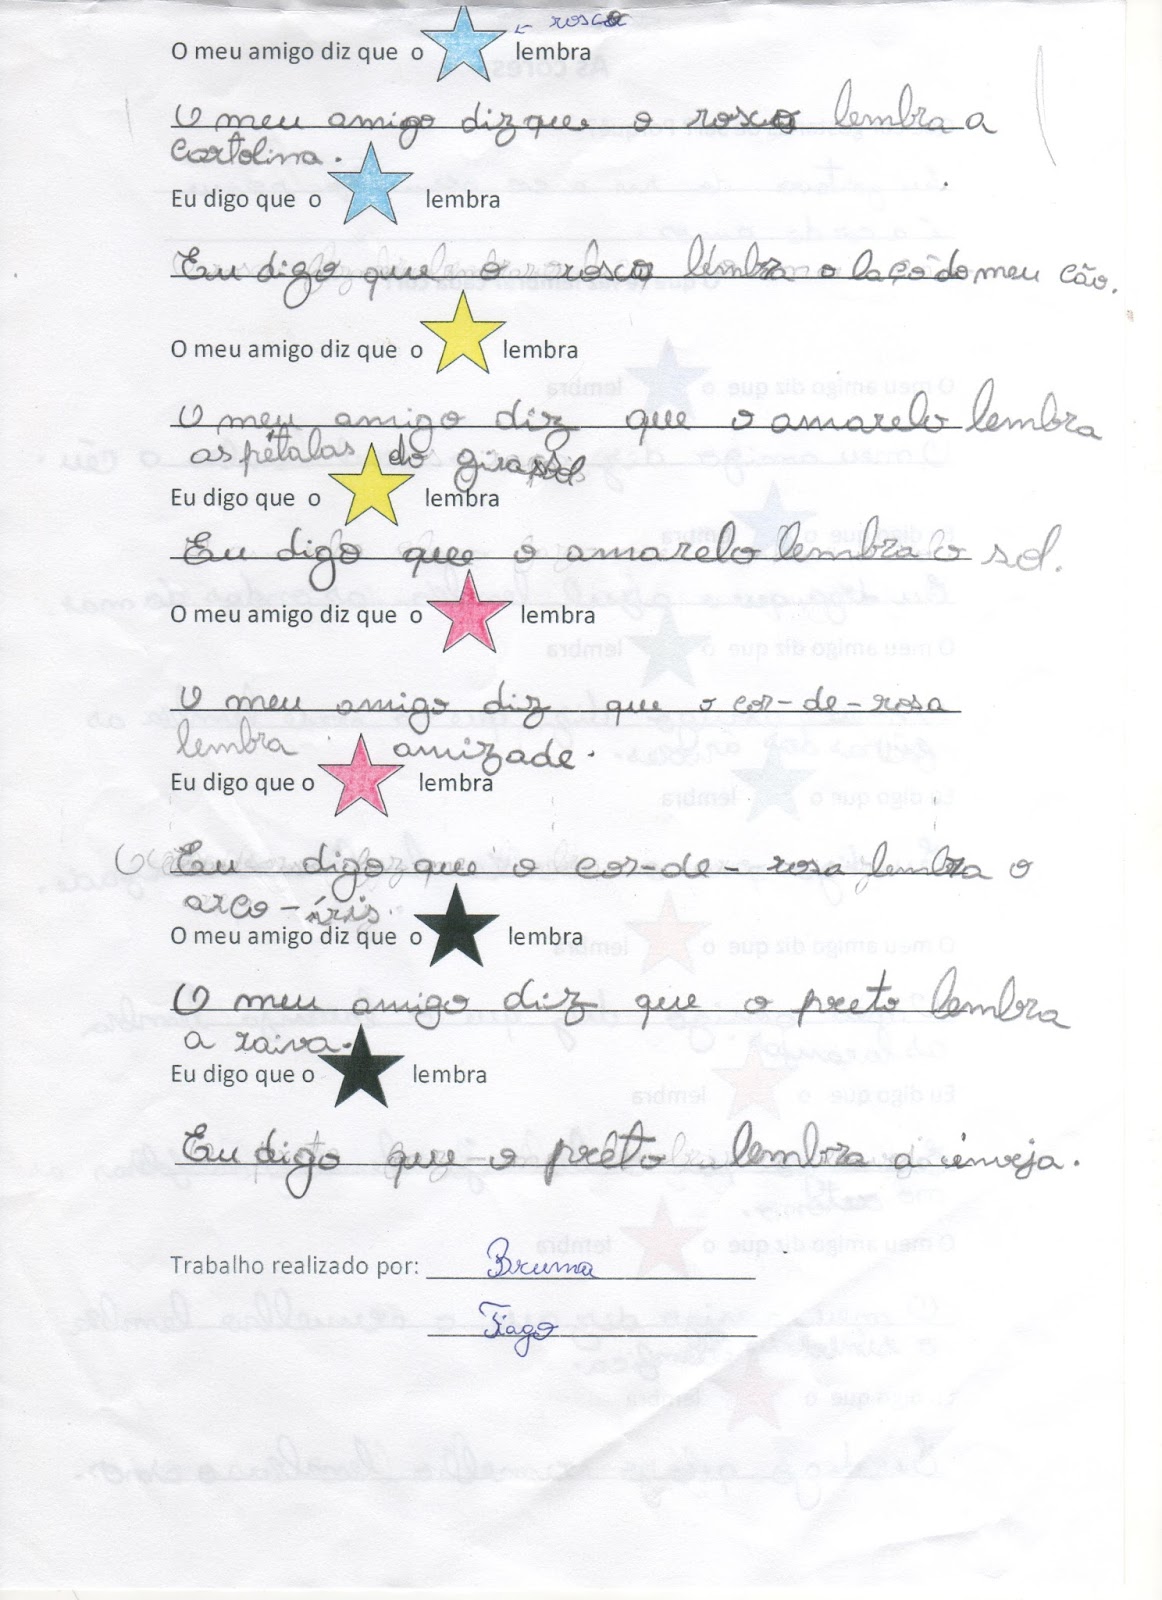 ← roscо
O meu amigo diz que o lembra
O meu amigo diz que o rosco lembra a
cartolina.
Eu digo que o lembra
Eu digo que o rosco lembra o laço do meu cão.
O meu amigo diz que o lembra
O meu amigo diz que o amarelo lembra
as pétalas do girassol
Eu digo que o lembra
Eu digo que o amarelo lembra o sol.
O meu amigo diz que o lembra
O meu amigo diz que o cor-de-rosa
lembra amizade.
Eu digo que o lembra
Eu digo que o cor-de-rosa lembra o
arco-íris.
O meu amigo diz que o lembra
O meu amigo diz que o preto lembra
a raiva.
Eu digo que o lembra
Eu digo que o preto lembra a inveja.
Trabalho realizado por: Bruma
Tiago